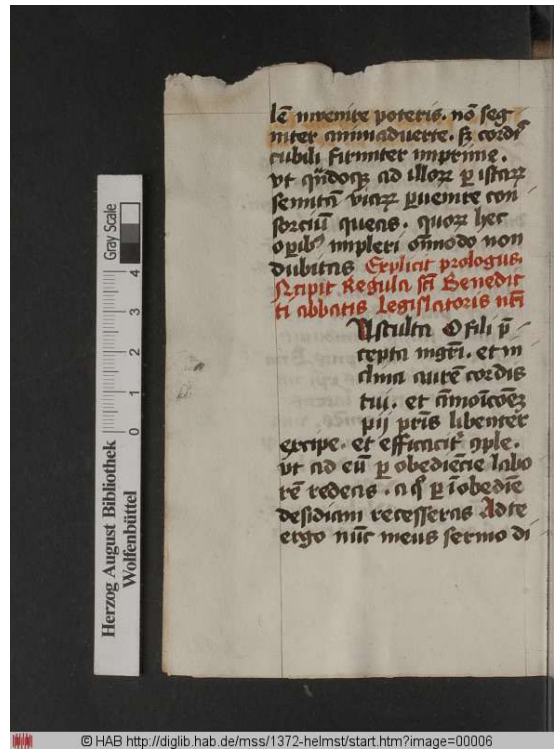 lē invenire poteris. nō seg
niter animadverte. sꝫ cordꝭ
cubili firmiter imprime.
vt qn̄doqꝫ ad illoꝝ ꝑ istaꝝ
semitā viaꝝ ꝑuenire con
sorciū queas. quoꝝ hec
oꝑibꝰ impleri om̄modo non
dubitas Explicit prologus.
Incipit Regula sc̄i Benedic
ti abbatis Legislatoris nr̄i
Asculta O fili p̄
cepta mgr̄i. et in
clina aurē cordis
tui. et
pij pr̄is libenter
excipe. et efficacit᷑ ꝯple.
vt ad eū ꝑ obediēcie labo
rē redeas. a qͦ ꝑ īobediē
desidiam recesseras Ad te
ergo nūc meus sermo di
Gray Scale
0 1 2 3 4
Herzog August Bibliothek
Wolfenbüttel
© HAB http://diglib.hab.de/mss/1372-helmst/start.htm?image=00006